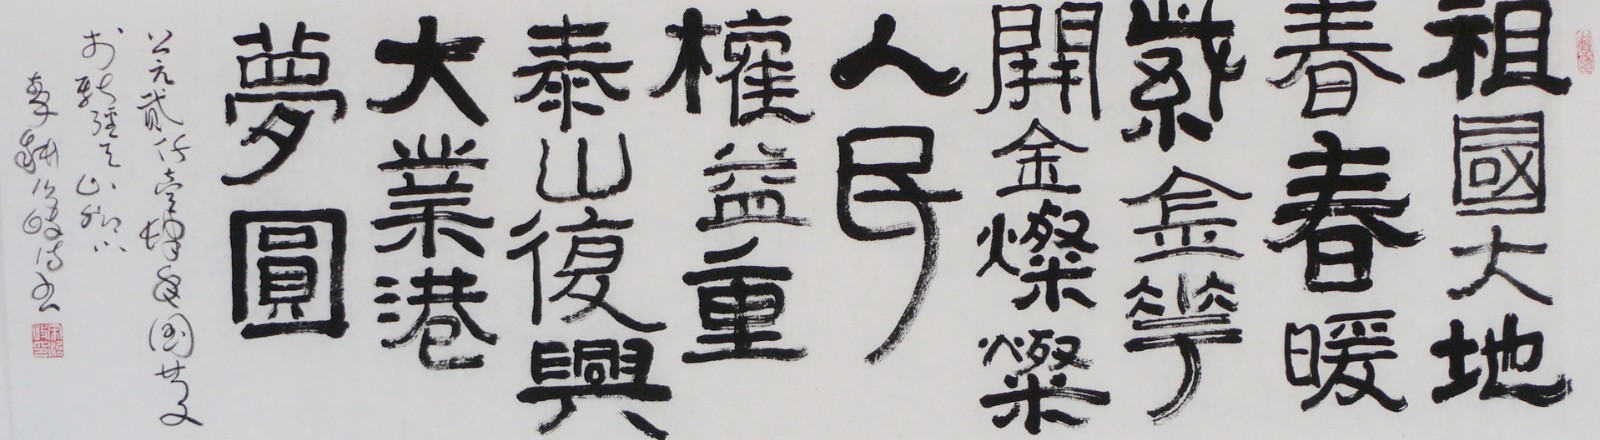 祖國大地
春春暖
紫金花
開金燦燦
人民
權益重
泰山復興
大業港
夢圓
公元贰仟壹拾
国慶
山